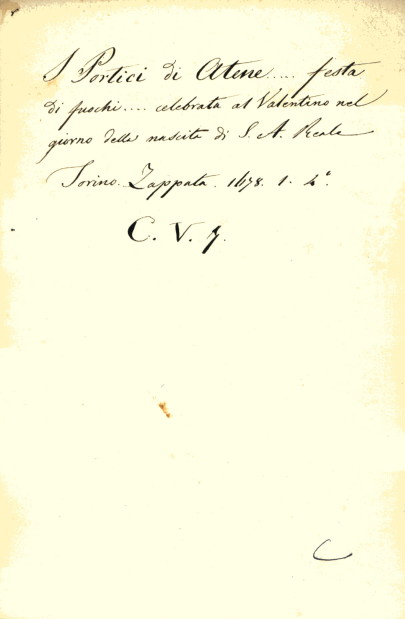 I Portici di Atene.... festa
di fuochi.... celebrata al Valentino nel
giorno della nascita di S. A. Reale
Torino. Zappata. 1678. 1. 4°.
C. V. 7.
C